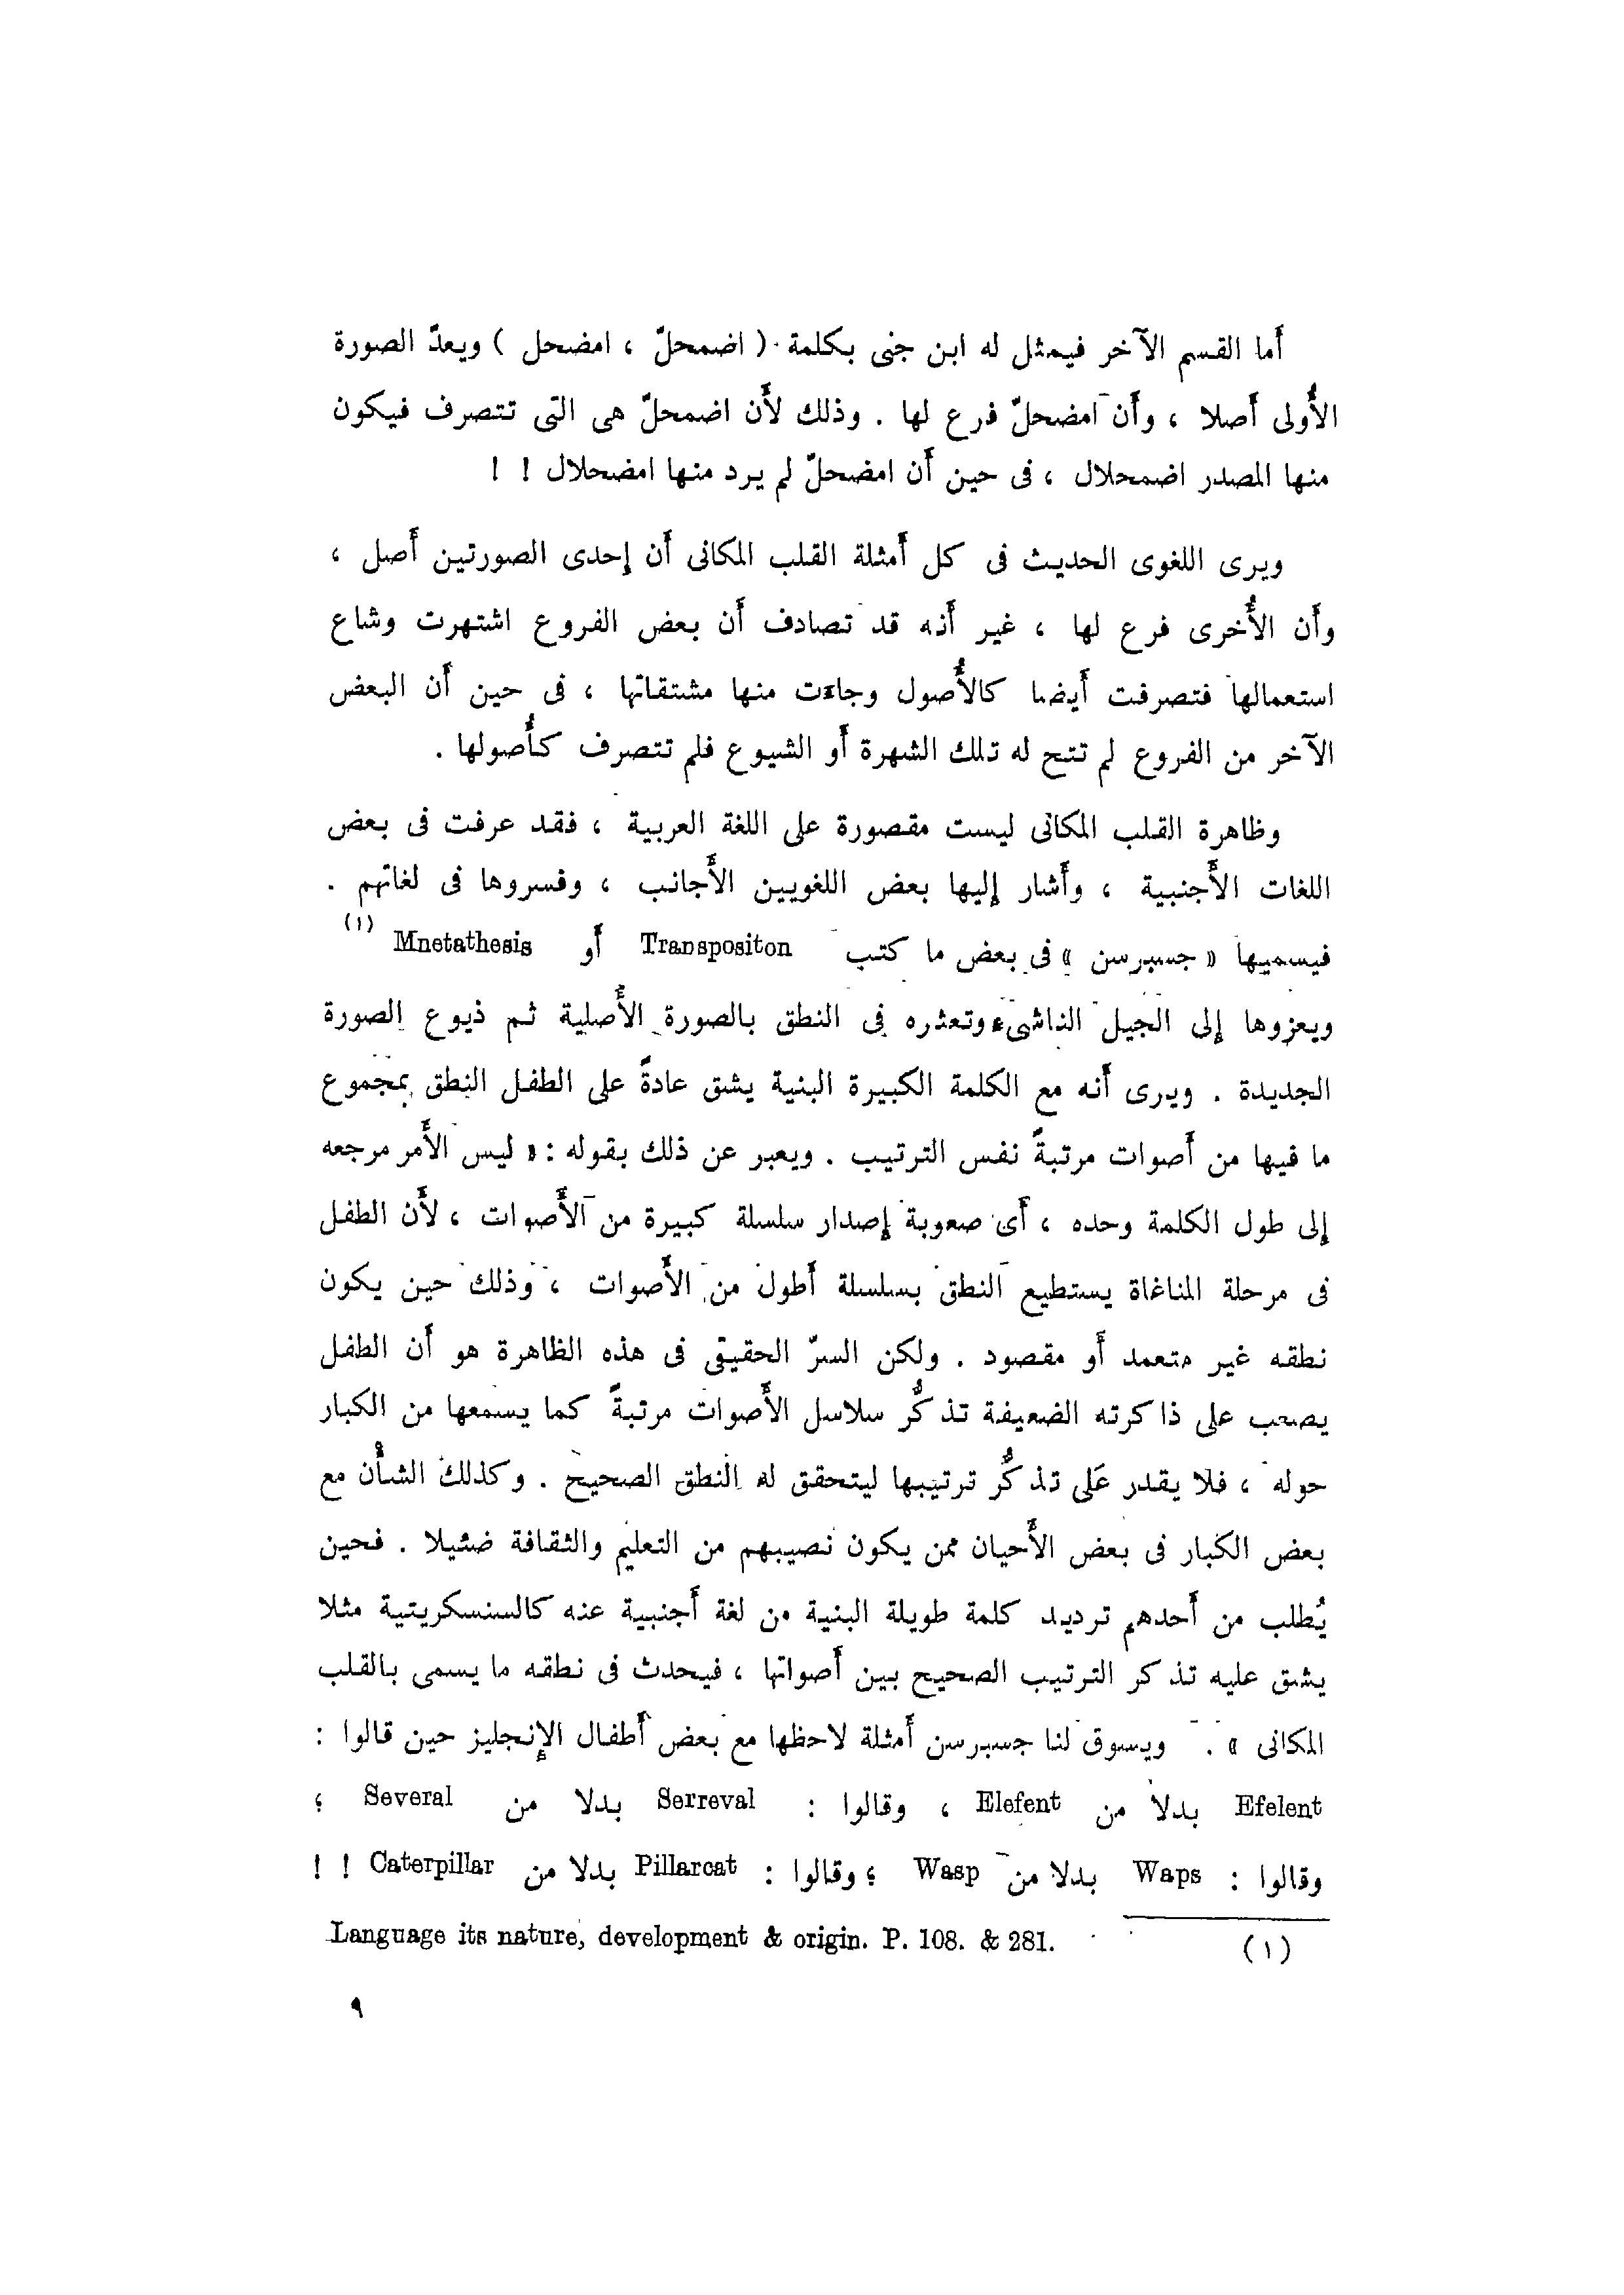 أما القسم الآخر فيمثل له ابن جنى بكلمة ( اضمحلّ ، امضحل ) ويعدّ الصورة
الأُولى أصلا ، وأن امضحلّ فرع لها . وذلك لأَن اضمحلّ هى التى تتصرف فيكون
منها المصدر اضمحلال ، فى حين أن امضحلّ لم يرد منها امضحلال ! !
ويرى اللغوى الحديث فى كل أمثلة القلب المكانى أن إحدى الصورتين أصل ،
وأن الأُخرى فرع لها ، غير أنه قد تصادف أن بعض الفروع اشتهرت وشاع
استعمالها فتصرفت أيضا كالأُصول وجاءت منها مشتقاتها ، فى حين أن البعض
الآخر من الفروع لم تتح له تلك الشهرة أو الشيوع فلم تتصرف كأُصولها .
وظاهرة القلب المكانى ليست مقصورة على اللغة العربية ، فقد عرفت فى بعض
اللغات الأَجنبية ، وأشار إليها بعض اللغويين الأَجانب ، وفسروها فى لغاتهم .
فيسميها « جسبرسن » فى بعض ما كتب Transpositon أو Mnetathesis (١)
ويعزوها إلى الجيل الناشىء وتعثره فى النطق بالصورة الأَصلية ثم ذيوع الصورة
الجديدة . ويرى أنه مع الكلمة الكبيرة البنية يشق عادةً على الطفل النطق بمجموع
ما فيها من أصوات مرتبةً نفس الترتيب . ويعبر عن ذلك بقوله : « ليس الأَمر مرجعه
إلى طول الكلمة وحده ، أى صعوبة إصدار سلسلة كبيرة من الأَصوات ، لأَن الطفل
فى مرحلة المناغاة يستطيع النطق بسلسلة أطول من الأَصوات ، وذلك حين يكون
نطقه غير متعمد أو مقصود . ولكن السرّ الحقيقى فى هذه الظاهرة هو أن الطفل
يصعب على ذاكرته الضعيفة تذكُّر سلاسل الأَصوات مرتبةً كما يسمعها من الكبار
حوله ، فلا يقدر عَلى تذكُّر ترتيبها ليتحقق له النطق الصحيح . وكذلك الشأْن مع
بعض الكبار فى بعض الأَحيان ممن يكون نصيبهم من التعليم والثقافة ضئيلا . فحين
يُطلب من أحدهم ترديد كلمة طويلة البنية من لغة أجنبية عنه كالسنسكريتية مثلا
يشق عليه تذكر الترتيب الصحيح بين أصواتها ، فيحدث فى نطقه ما يسمى بالقلب
المكانى » . ويسوق لنا جسبرسن أمثلة لاحظها مع بعض أطفال الإنجليز حين قالوا :
Efelent بدلا من Elefent ، وقالوا : Serreval بدلا من Several ؛
وقالوا : Waps بدلا من Wasp ؛ وقالوا : Pillarcat بدلا من Caterpillar ! !
(١) Language its nature, development & origin. P. 108. & 281.
٩